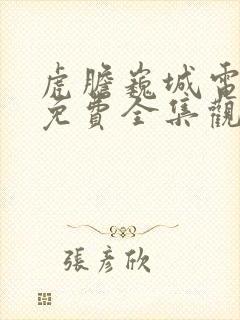 虎膽巍城電
免費全集觀
張彥欣